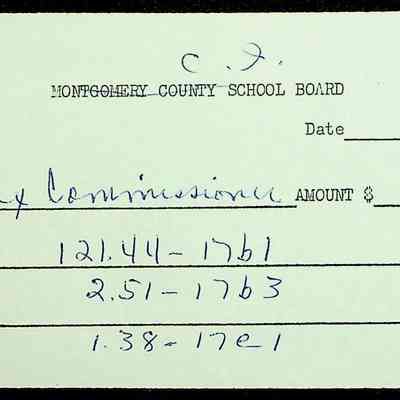 C. I.
MONTGOMERY COUNTY SCHOOL BOARD
Date
x Commissioner AMOUNT $
121.44 - 17b1
2.51 - 17b3
1.38 - 17e1